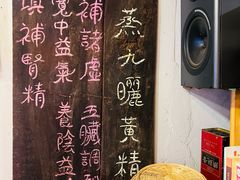 蒸九曬黃精
補諸虛 五臟調
寬中益氣 養陰益
填補腎精